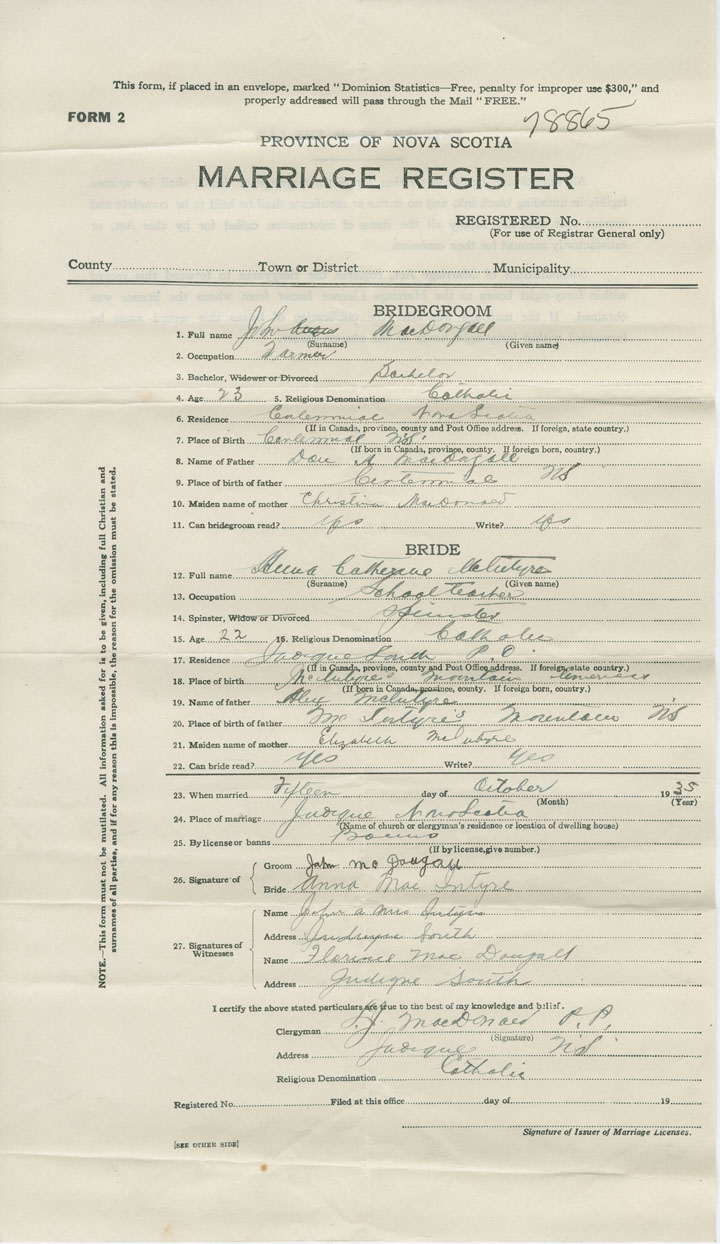 This form, if placed in an envelope, marked "Dominion Statistics—Free, penalty for improper use $300," and
properly addressed will pass through the Mail "FREE."
FORM 2
78865
PROVINCE OF NOVA SCOTIA
MARRIAGE REGISTER
REGISTERED No.
(For use of Registrar General only)
County Town or District Municipality
BRIDEGROOM
1. Full name John MacDougall
(Surname) (Given name)
2. Occupation Farmer
3. Bachelor, Widower or Divorced Bachelor
4. Age 23 5. Religious Denomination Catholic
6. Residence Centennial Nova Scotia
(If in Canada, province, county and Post Office address. If foreign, state country.)
7. Place of Birth Centennial NS
(If born in Canada, province, county. If foreign born, country.)
8. Name of Father Dan A MacDougall
9. Place of birth of father Centennial NS
10. Maiden name of mother Christina MacDonald
11. Can bridegroom read? yes Write? yes
BRIDE
12. Full name Anna Catherine McIntyre
(Surname) (Given name)
13. Occupation School teacher
14. Spinster, Widow or Divorced Spinster
15. Age 22 16. Religious Denomination Catholic
17. Residence Judique South P.O.
(If in Canada, province, county and Post Office address. If foreign, state country.)
18. Place of birth McIntyre's Mountain Inverness
(If born in Canada, province, county. If foreign born, country.)
19. Name of father Alex McIntyre
20. Place of birth of father McIntyre's Mountain NS
21. Maiden name of mother Elizabeth McIntyre
22. Can bride read? yes Write? yes
23. When married Fifteen day of October 1935
(Month) (Year)
24. Place of marriage Judique Nova Scotia
(Name of church or clergyman's residence or location of dwelling house)
25. By license or banns Banns
(If by license, give number.)
26. Signature of
Groom John McDougall
Bride Anna MacIntyre
27. Signatures of Witnesses
Name John A MacIntyre
Address Judique South
Name Florence MacDougall
Address Judique South
I certify the above stated particulars are true to the best of my knowledge and belief.
Clergyman MacDonald P.P.
(Signature)
Address Judique NS
Religious Denomination Catholic
Registered No. Filed at this office day of 19
Signature of Issuer of Marriage Licenses.
[SEE OTHER SIDE]
NOTE.—This form must not be mutilated. All information asked for is to be given, including full Christian and
surnames of all parties, and if for any reason this is impossible, the reason for the omission must be stated.